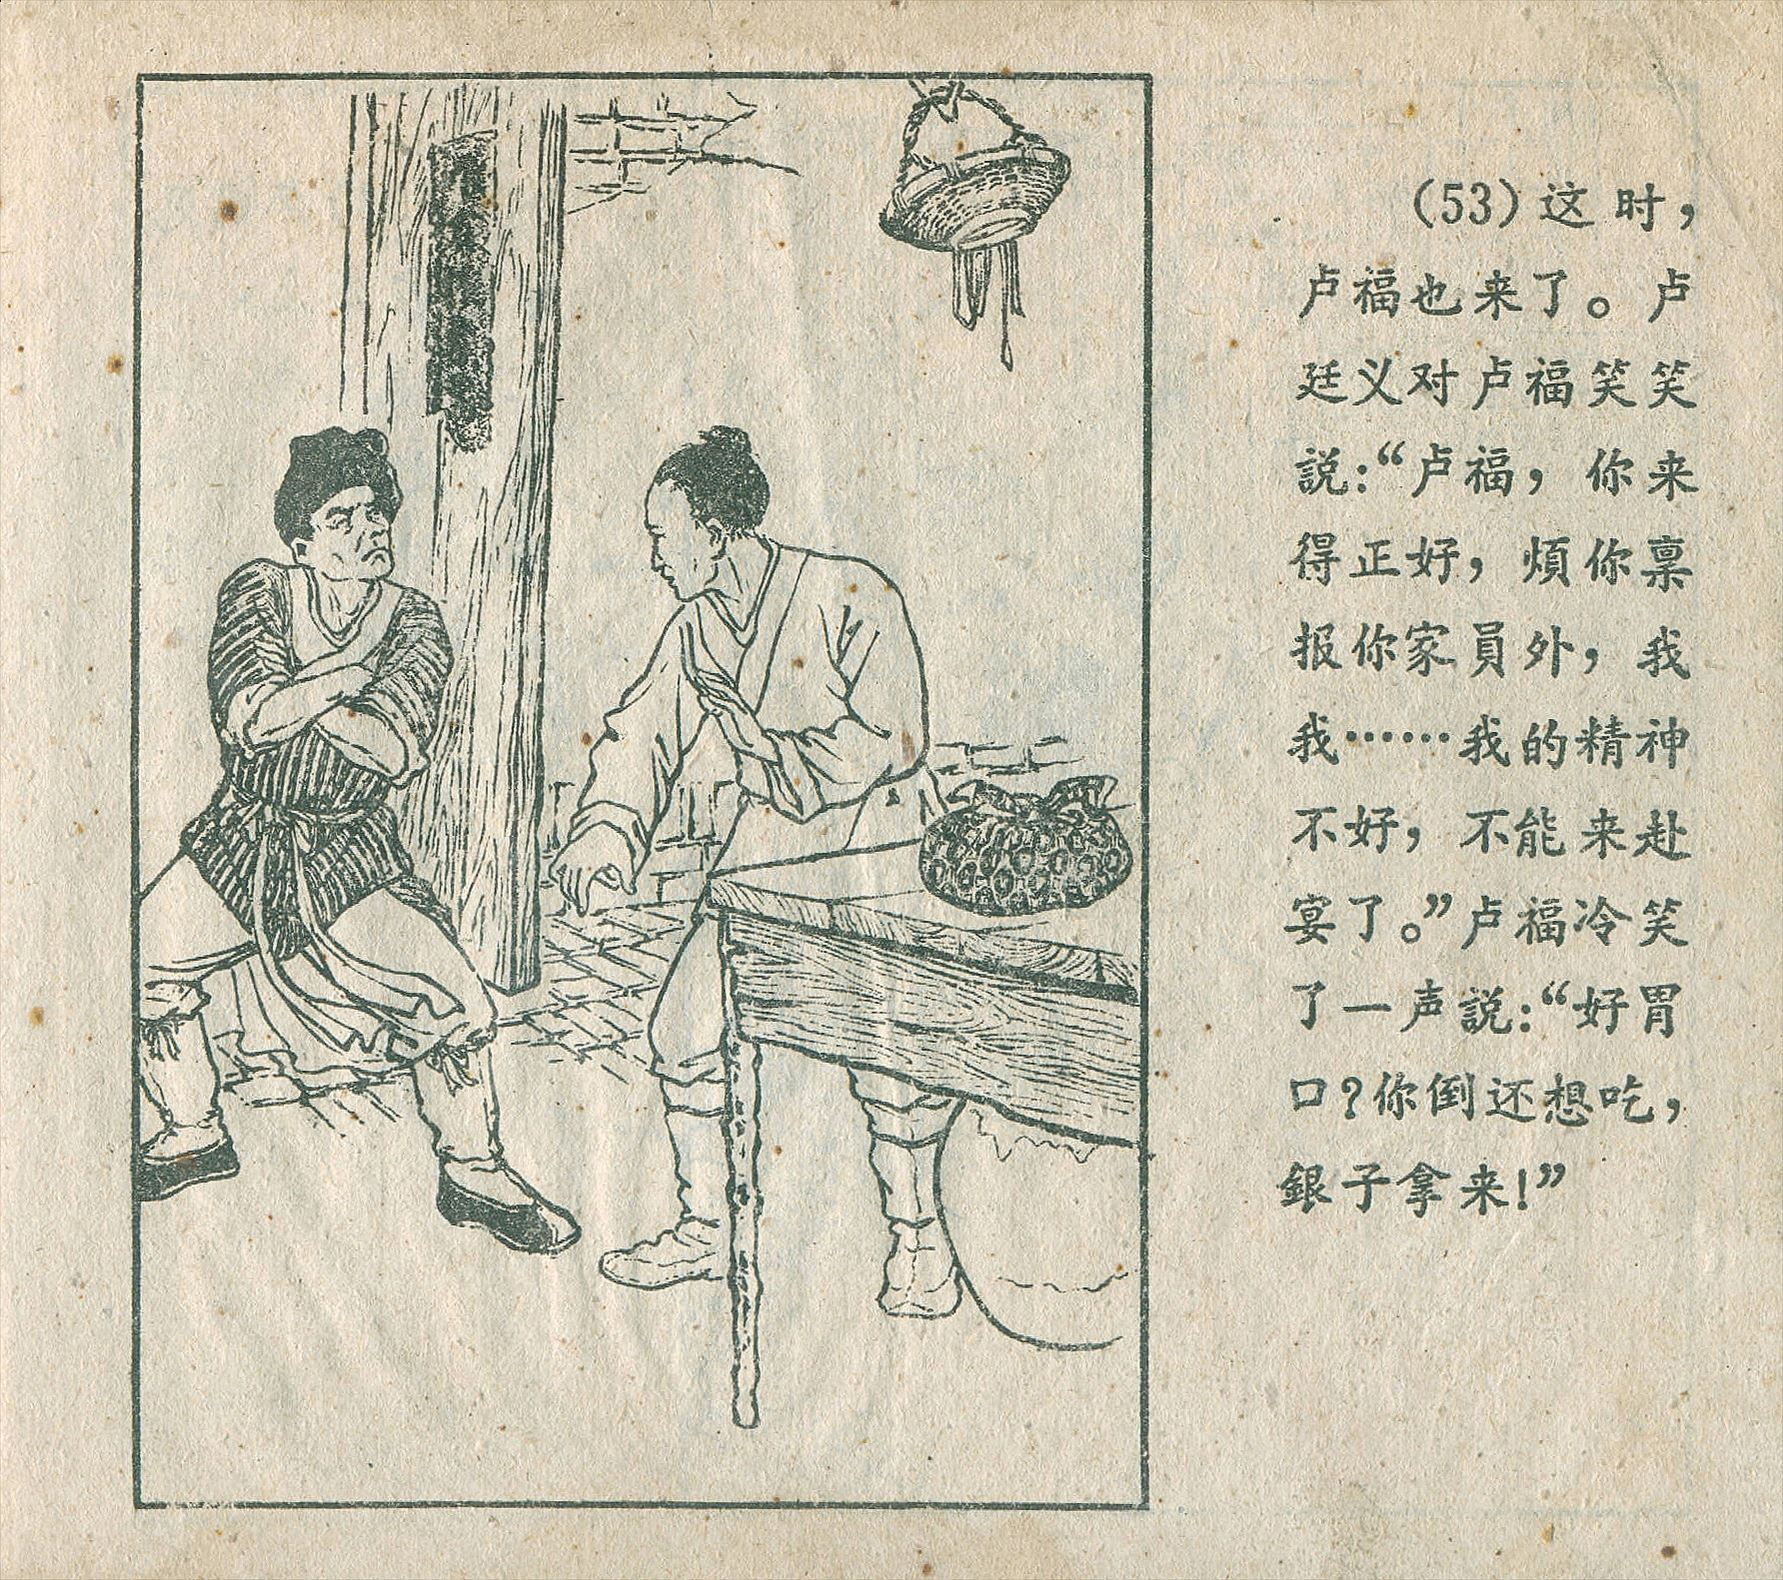 （53）这时，
卢福也来了。卢
廷义对卢福笑笑
説：“卢福，你来
得正好，煩你禀
报你家員外，我
我……我的精神
不好，不能来赴
宴了。”卢福冷笑
了一声説：“好胃
口？你倒还想吃，
銀子拿来！”